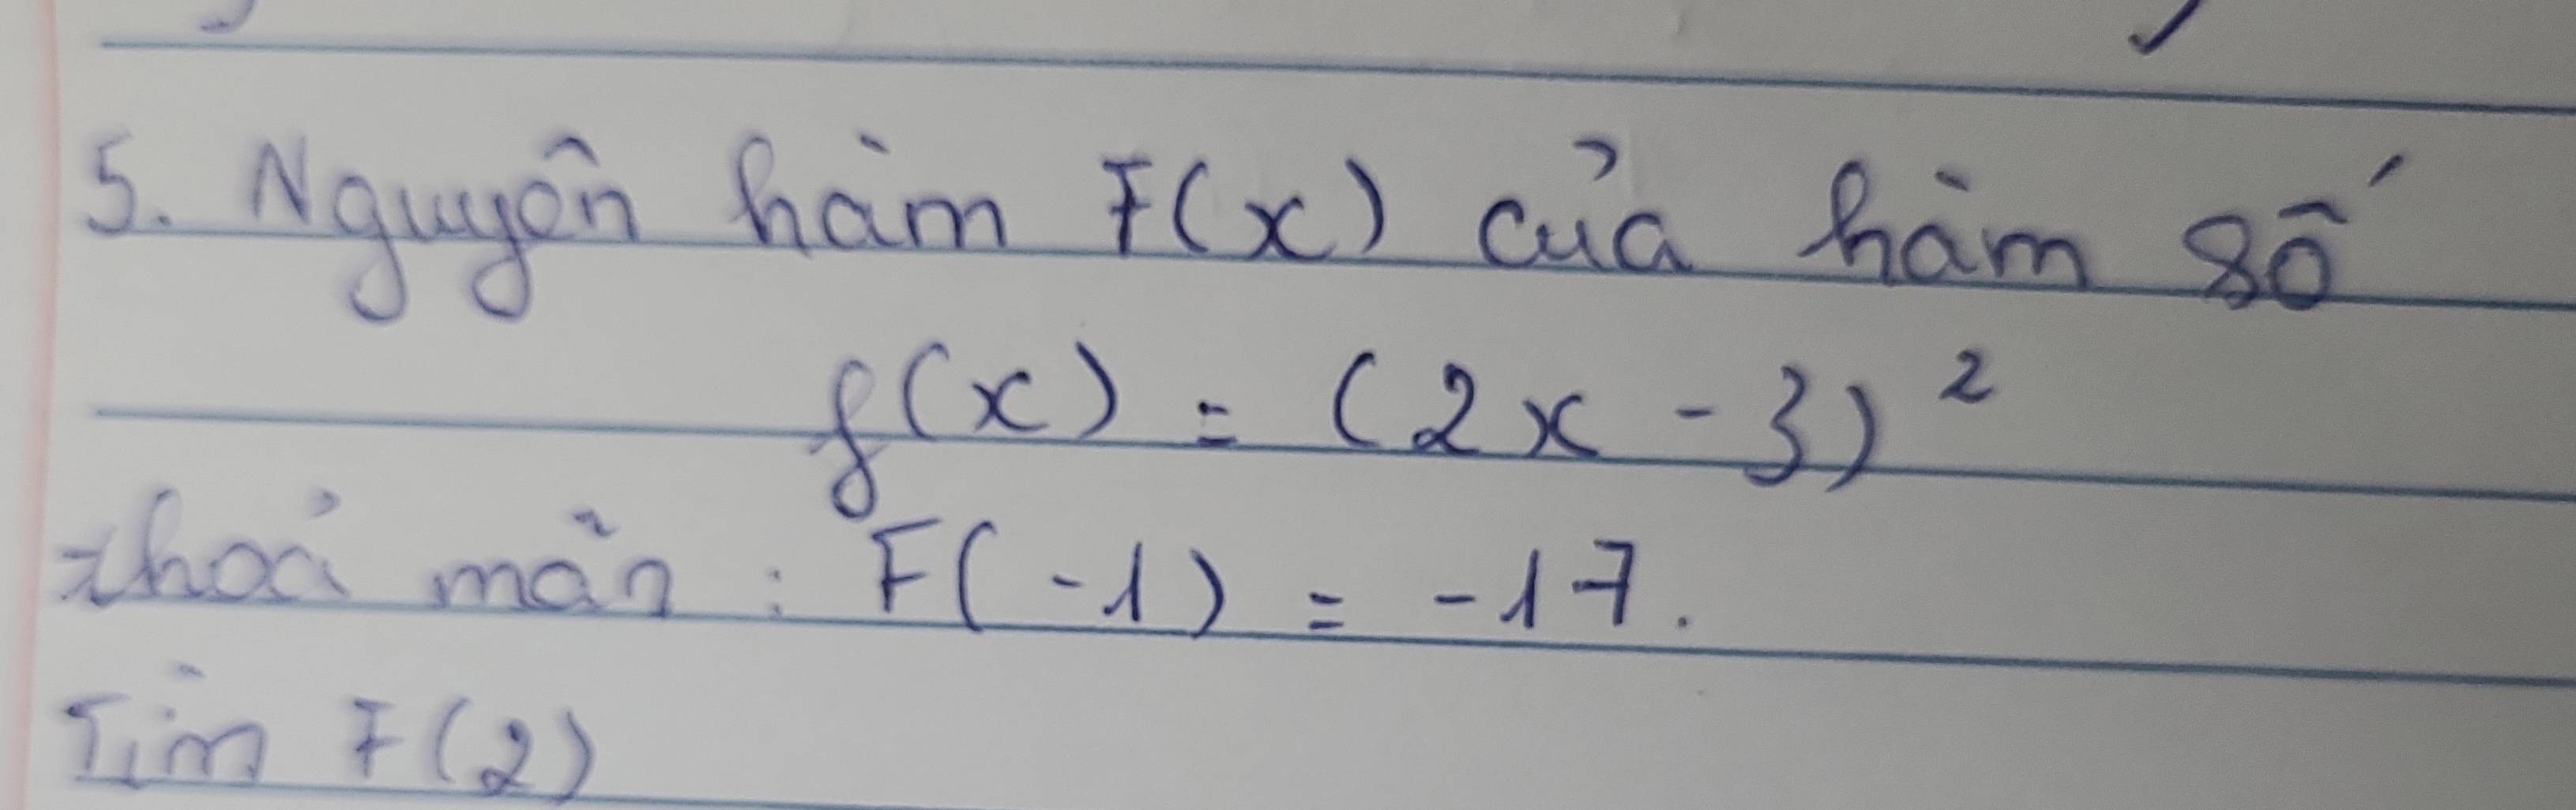 5. Nguyên hàm F(x) của hàm số
f(x) = (2x - 3)²
thoả mãn : F(-1) = -17.
Tìm F(2)